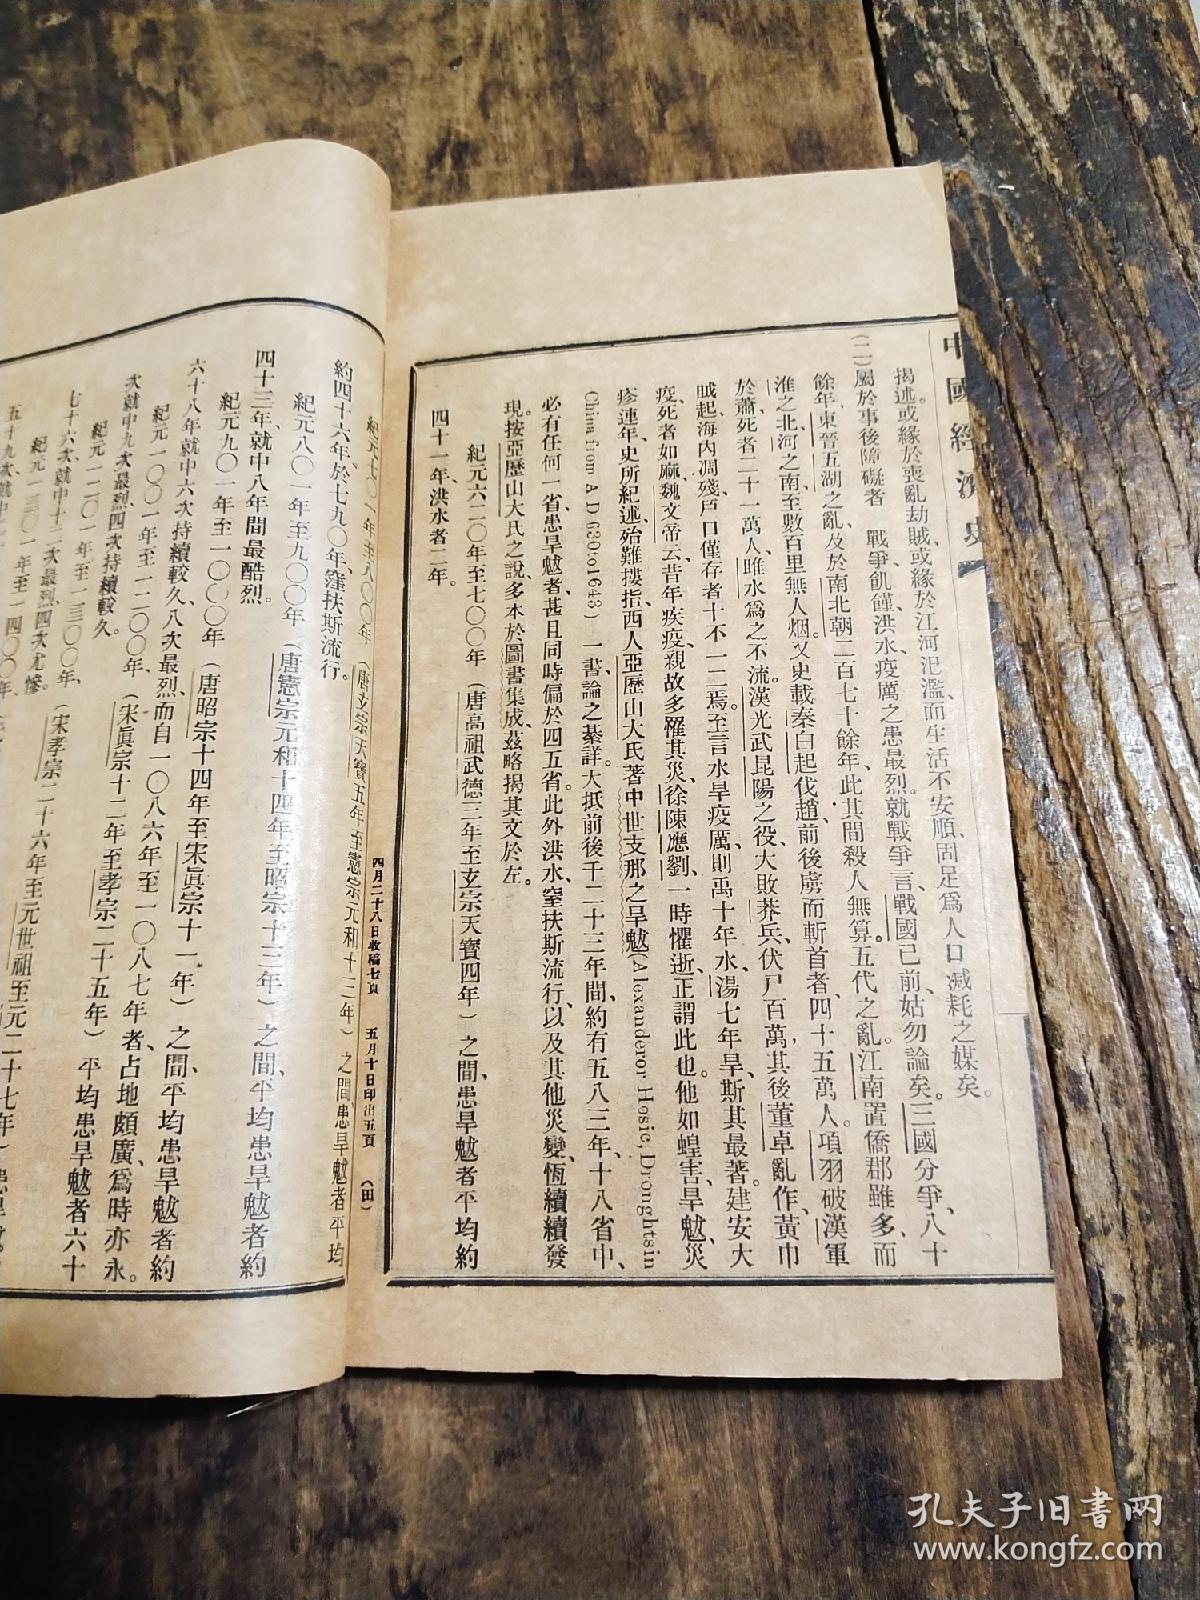 中國經濟史
揭述。或緣於喪亂劫賊、或緣於江河汜濫、而生活不安順、固足爲人口減耗之媒矣。
(二)屬於事後障礙者　戰爭飢饉洪水疫厲之患最烈。就戰爭言、戰國已前、姑勿論矣。三國分爭、八十
餘年、東晉五湖之亂、及於南北朝二百七十餘年、此其間殺人無算。五代之亂。江南置僑郡雖多、而
淮之北、河之南、至數百里無人烟。又史載秦白起伐趙、前後虜而斬首者、四十五萬人。項羽破漢軍
於蕭、死者二十一萬人、睢水爲之不流。漢光武昆陽之役、大敗莽兵、伏尸百萬、其後董卓亂作、黃巾
賊起、海內凋殘、戶口僅存者十不一二焉。至言水旱疫厲、則禹十年水、湯七年旱、斯其最著。建安大
疫、死者如麻、魏文帝云、昔年疾疫、親故多罹其災、徐陳應劉、一時懼逝、正謂此也。他如蝗害旱魃、災
疹連年、史所紀述、殆難摟指、西人亞歷山大氏著中世支那之旱魃(Alexanderor Hosie, Droughtsin
China from A D 620to1643)一書、論之綦詳。大抵前後千二十三年間、約有五八三年、十八省中、
必有任何一省、患旱魃者、甚且同時偏於四五省。此外洪水、窒扶斯流行、以及其他災變、恆續續發
現。按亞歷山大氏之說、多本於圖書集成、茲略揭其文於左。
紀元六二〇年至七〇〇年(唐高祖武德三年至玄宗天寶四年)之間、患旱魃者平均約
四十一年、洪水者二年。
四月二十八日收稿七頁　五月十日印出五頁　(田)
紀元七〇一年至八〇〇年(唐玄宗天寶五年至憲宗元和十三年)之間、患旱魃者平均
約四十六年、於七九〇年、窒扶斯流行。
紀元八〇一年至九〇〇年(唐憲宗元和十四年至昭宗十三年)之間、平均患旱魃者約
四十三年、就中八年間最酷烈。
紀元九〇一年至一〇〇〇年(唐昭宗十四年至宋眞宗十一年)之間、平均患旱魃者約
六十八年、就中六次持續較久、八次最烈、而自一〇八六年至一〇八七年者、占地頗廣、爲時亦永。
紀元一〇〇一年至一二〇〇年、(宋眞宗十二年至孝宗二十五年)平均患旱魃者六十
次、就中九次最烈、四次持續較久。
紀元一二〇一年至一三〇〇年、(宋孝宗二十六年至元世祖至元二十七年)患旱魃
七十六次、就中十二次最烈、四次尤慘。
紀元一三〇一年至一四〇〇年
五十九次、就中
孔夫子旧书网
www.kongfz.com